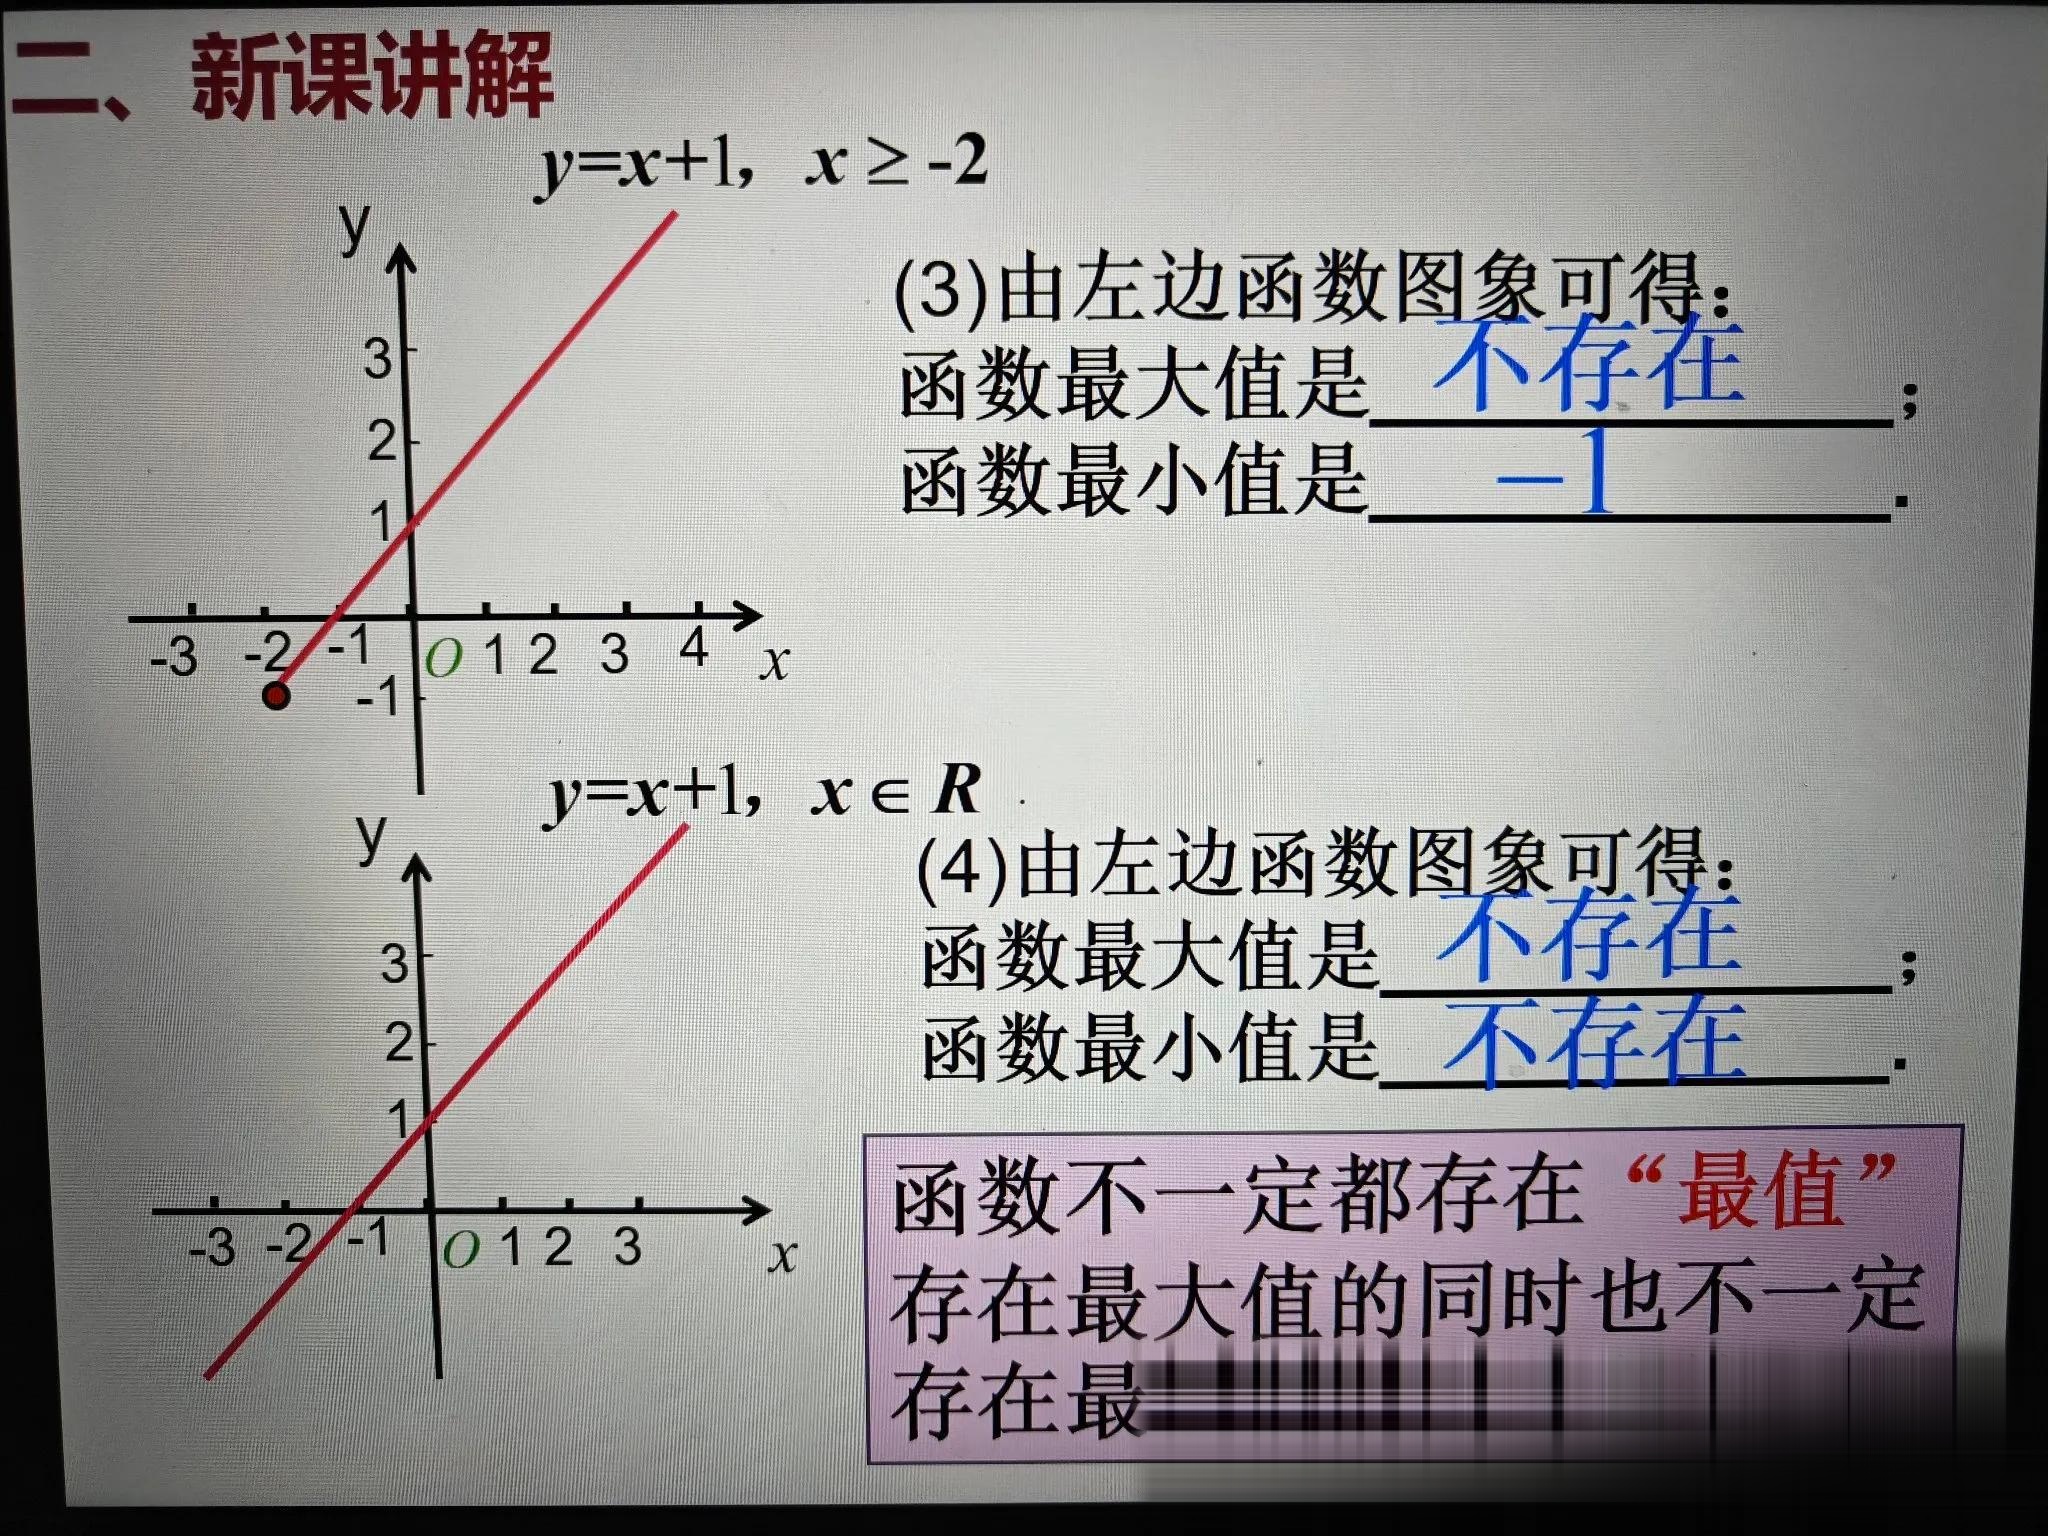 二、新课讲解
y=x+1，x ≥ -2
y
3
2
1
-3 -2 -1 O 1 2 3 4 x
-1
(3)由左边函数图象可得：
函数最大值是 不存在 ；
函数最小值是 –1 .
y=x+1，x ∈ R
y
3
2
1
-3 -2 -1 O 1 2 3 x
(4)由左边函数图象可得：
函数最大值是 不存在 ；
函数最小值是 不存在 .
函数不一定都存在“最值”
存在最大值的同时也不一定
存在最